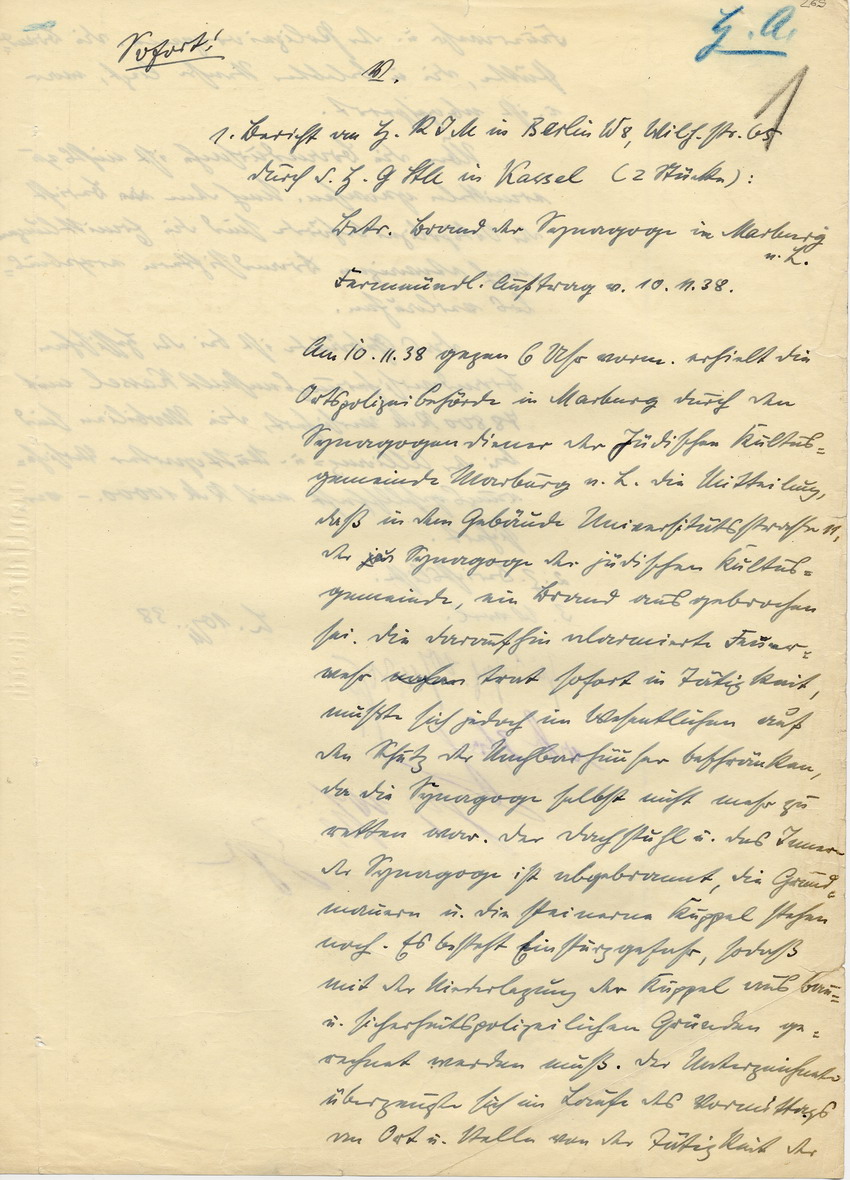 263
H. A.
Sofort!
V.
1
1. Bericht an H. R J M in Berlin W8, Wilh. str. 65
durch d. H. G StA in Kassel (2 Stücke):
Betr. Brand der Synagoge in Marburg
a. L.
Fernmündl. Auftrag v. 10. 11. 38.
Am 10. 11. 38 gegen 6 Uhr vorm. erhielt die
Ortspolizeibehörde in Marburg durch den
Synagogendiener der Jüdischen Kultus=
gemeinde Marburg a. L. die Mitteilung,
daß in dem Gebäude Universitätsstraße 11,
der Synagoge der jüdischen Kultus=
gemeinde, ein Brand ausgebrochen
sei. Die daraufhin alarmierte Feuer=
wehr trat sofort in Tätigkeit,
mußte sich jedoch im Wesentlichen auf
den Schutz der Nachbarhäuser beschränken,
da die Synagoge selbst nicht mehr zu
retten war. Der Dachstuhl u. das Innere
der Synagoge ist abgebrannt, die Grund=
mauern u. die steinerne Kuppel stehen
noch. Es besteht Einsturzgefahr, sodaß
mit der Niederlegung der Kuppel aus bau=
u. sicherheitspolizeilichen Gründen ge=
rechnet werden muß. Der Unterzeichnete
überzeugte sich im Laufe des Vormittags
an Ort u. Stelle von der Tätigkeit der